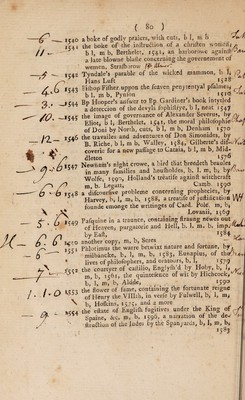 ( 80 )
6 — 1540 a boke of godly praiers, with cuts, b l, m b
11 - — 1541 the boke of the instruction of a christen woman
b l, m b, Berthelet, 1541, an harborowe against
a late blowne blaste concerning the governement of
wemen, Strasborow
5 — 1542 Tyndale's parable of the wicked mammon, b l,
Hans Luft 1528
4.6 1543 Bishop Fisher uppon the seaven penyentyal psalmes,
b l, m b, Pynson 1510
3 . — 1544 Bp Hooper's answer to Bp Gardiner's book intytled
a detection of the devyls sophistrye, b l, neat 1547
10.6 1545 the image of governance of Alexander Severus, by
Eliot, b l, Berthelet, 1541, the moral philosophie
of Doni by North, cuts, b l, m b, Denham 1570
12 — 1546 the travailes and adventures of Don Simonides, by
B. Riche, b l, m b, Walley, 1584, Gilberte's discoverie
for a new passage to Cataia, b l, m b, Middleton
1576
9.6 1547 Newnam's night crowe, a bird that breedeth braules
in many families and housholdes, b l, m b, by
Wolfe, 1590, Holland's treatise against witchcraft
m b, Legatt, Camb. 1590
6.6 1548 a discoursive probleme concerning prophecies, by
Harvey, b l, m b, 1588, a treatise of justification
founde emongst the writinges of Card. Pole, m b,
Lovanii, 1569
5.6 1549 Pasquine in a traunce, contaîning straung newes out
of Heaven, purgatorie and Hell, b l, m b, imp.
by East, 1584
6.6 1550 another copy, m b, Seres
6 — 1551 Philotimus the warre betwixt nature and fortune, by
milbancke, b l, m b, 1583, Eunapius, of the
lives of philosophers, and oratours, b l, 1579
7 — 1552 the courtyer of castilio, Englysh'd by Hoby, b l,
m b, 1561, the quinteience of wit by Hichcock,
b l, m b, Allde, 1590
1.1.0 1553 the flower of fame, containing the fortunate reigne
of Henry the VIIIth, in verse by Fulwell, b l, m
b, Hoskins, 1575, and 2 more
9 — 1554 the estate of English fugitives under the King of
Spaine, &c. m b, 1596, a narration of the destruction
of the Indes by the Spanyards, b l, m b,
1583